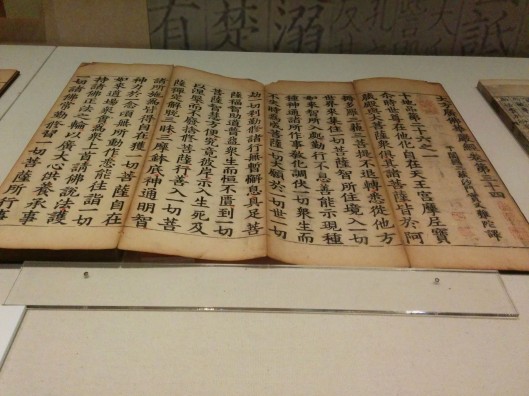 有楚溺
反
孔
大
大方廣佛華嚴經卷第三十四
于闐國三藏實叉難陀譯
十地品第二十六之一
尒時世尊在他化自在天王宮摩尼寶
藏殿與大菩薩衆俱其諸菩薩皆於阿
耨多羅三藐三菩提不退轉悉從他方
世界來集住一切菩薩智所住境入一切
如來智所入處勤行不息善能示現種
種神通諸所作事教化調伏一切衆生而
不失時爲成菩薩一切大願於一切世一切
劫一切刹勤修諸行無暫懈息具足菩
薩福智助道普益衆生而恒不匱到一切
菩薩智慧方便究竟彼岸示入生死及
以涅槃而不廢捨修菩薩行善入一切菩
薩禪定解脫三昧三摩鉢底神通明智
諸所施爲皆得自在獲一切菩薩自在
神力於一念頃無所動作悉能往詣一切
如來道場衆會爲衆上首請佛說法護
持諸佛正法之輪以廣大心供養承事
一切諸佛常勤修習一切菩薩所行事